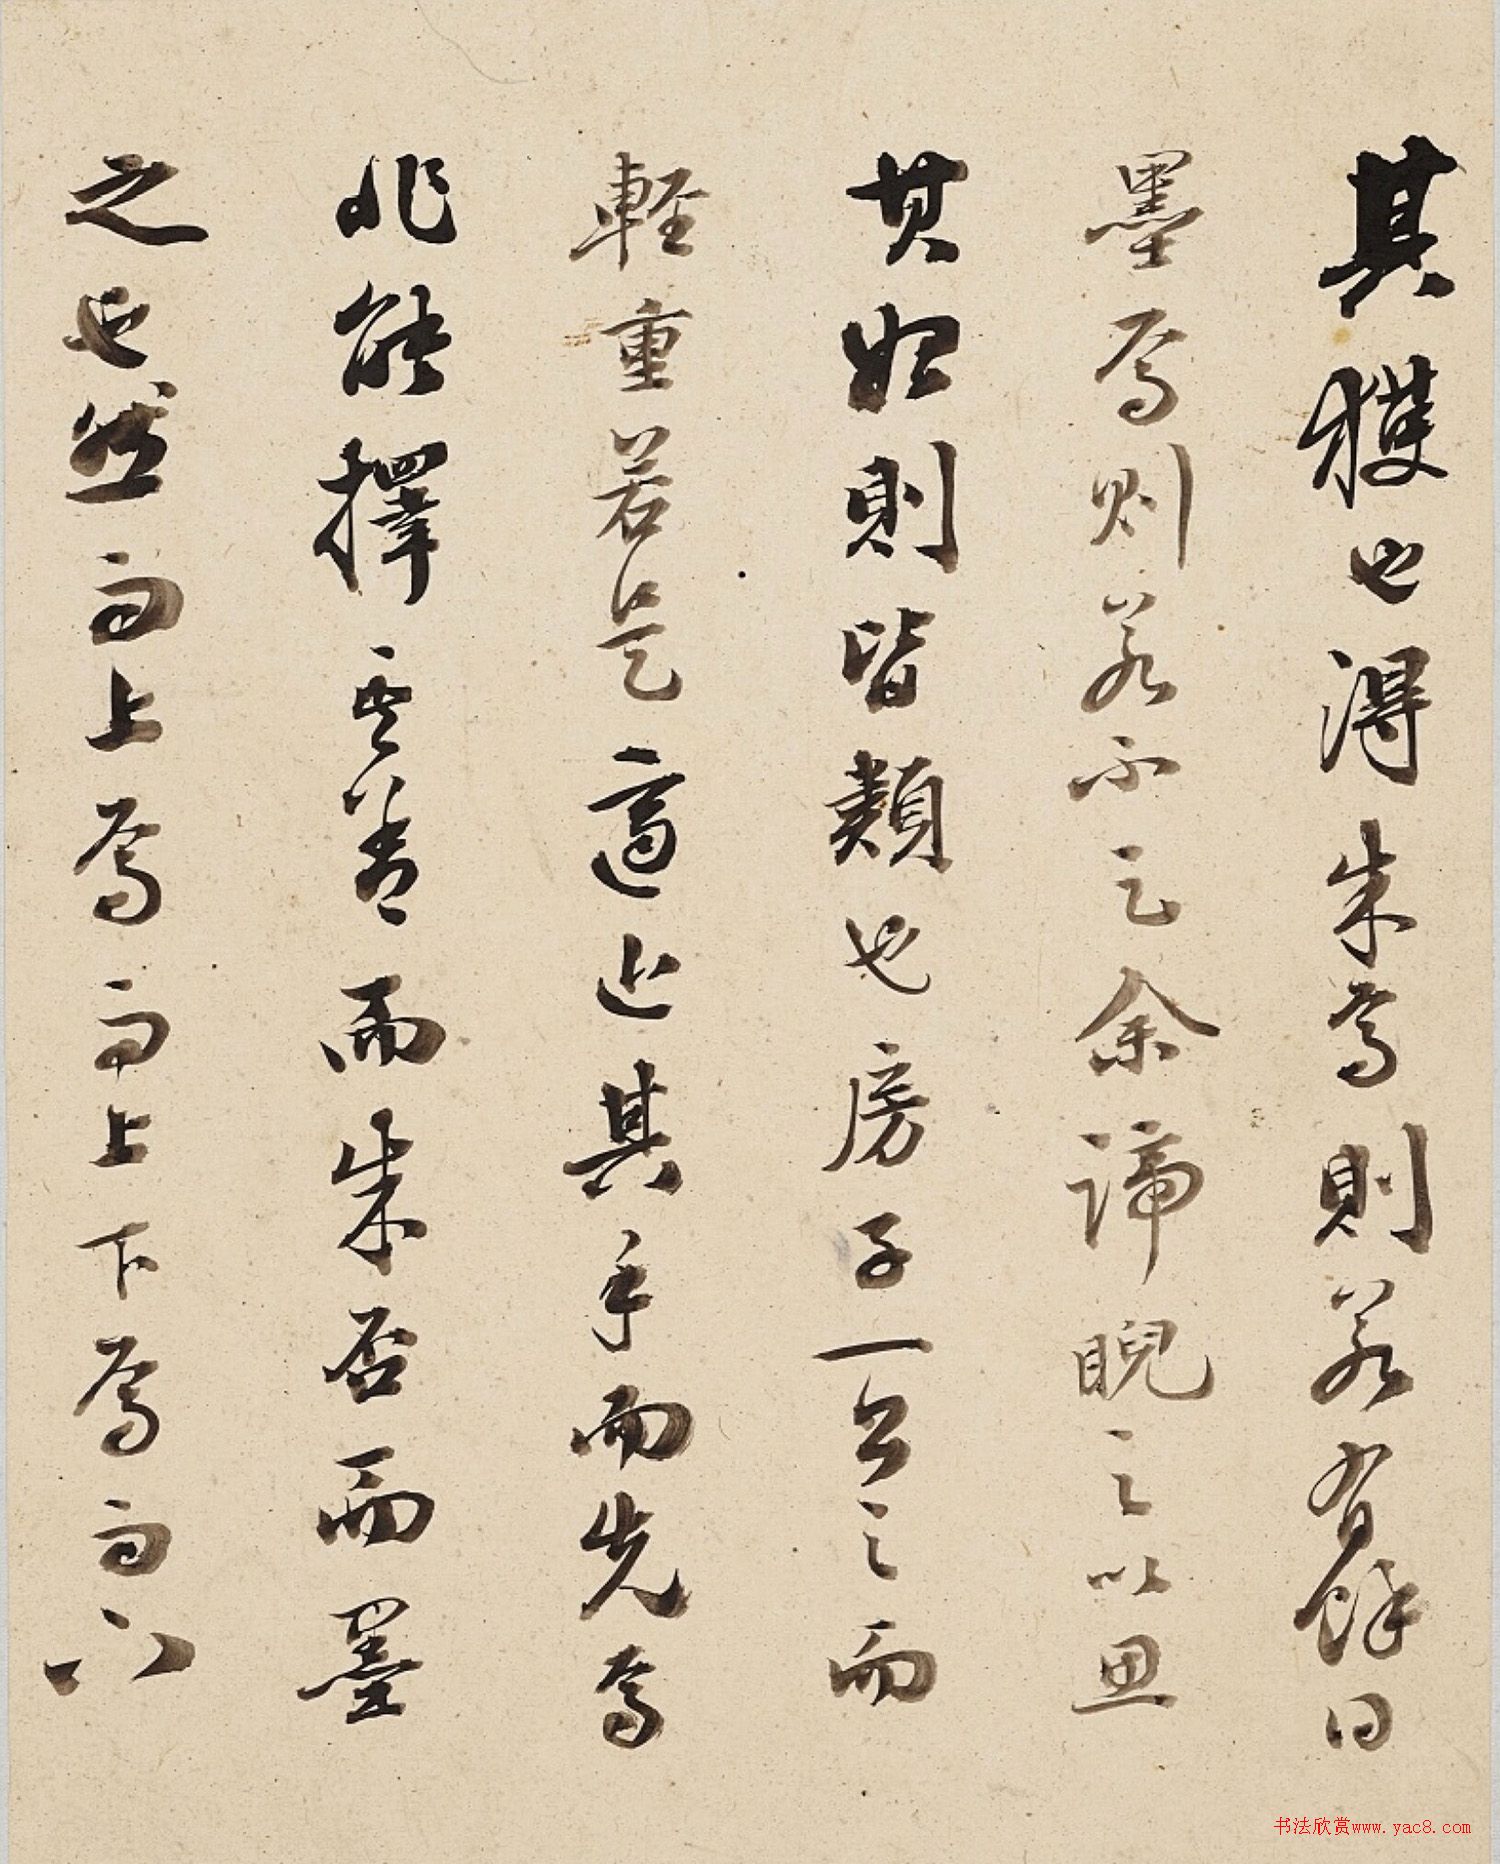 其獲也得朱焉則若有餘得
墨焉則若不足余諦睨之以思
其始則皆類也房子一書之而
輕重若是適近其手而先焉
非能擇其善而朱否而墨
之也然而上焉而上下焉而下
书法欣赏www.yac8.com